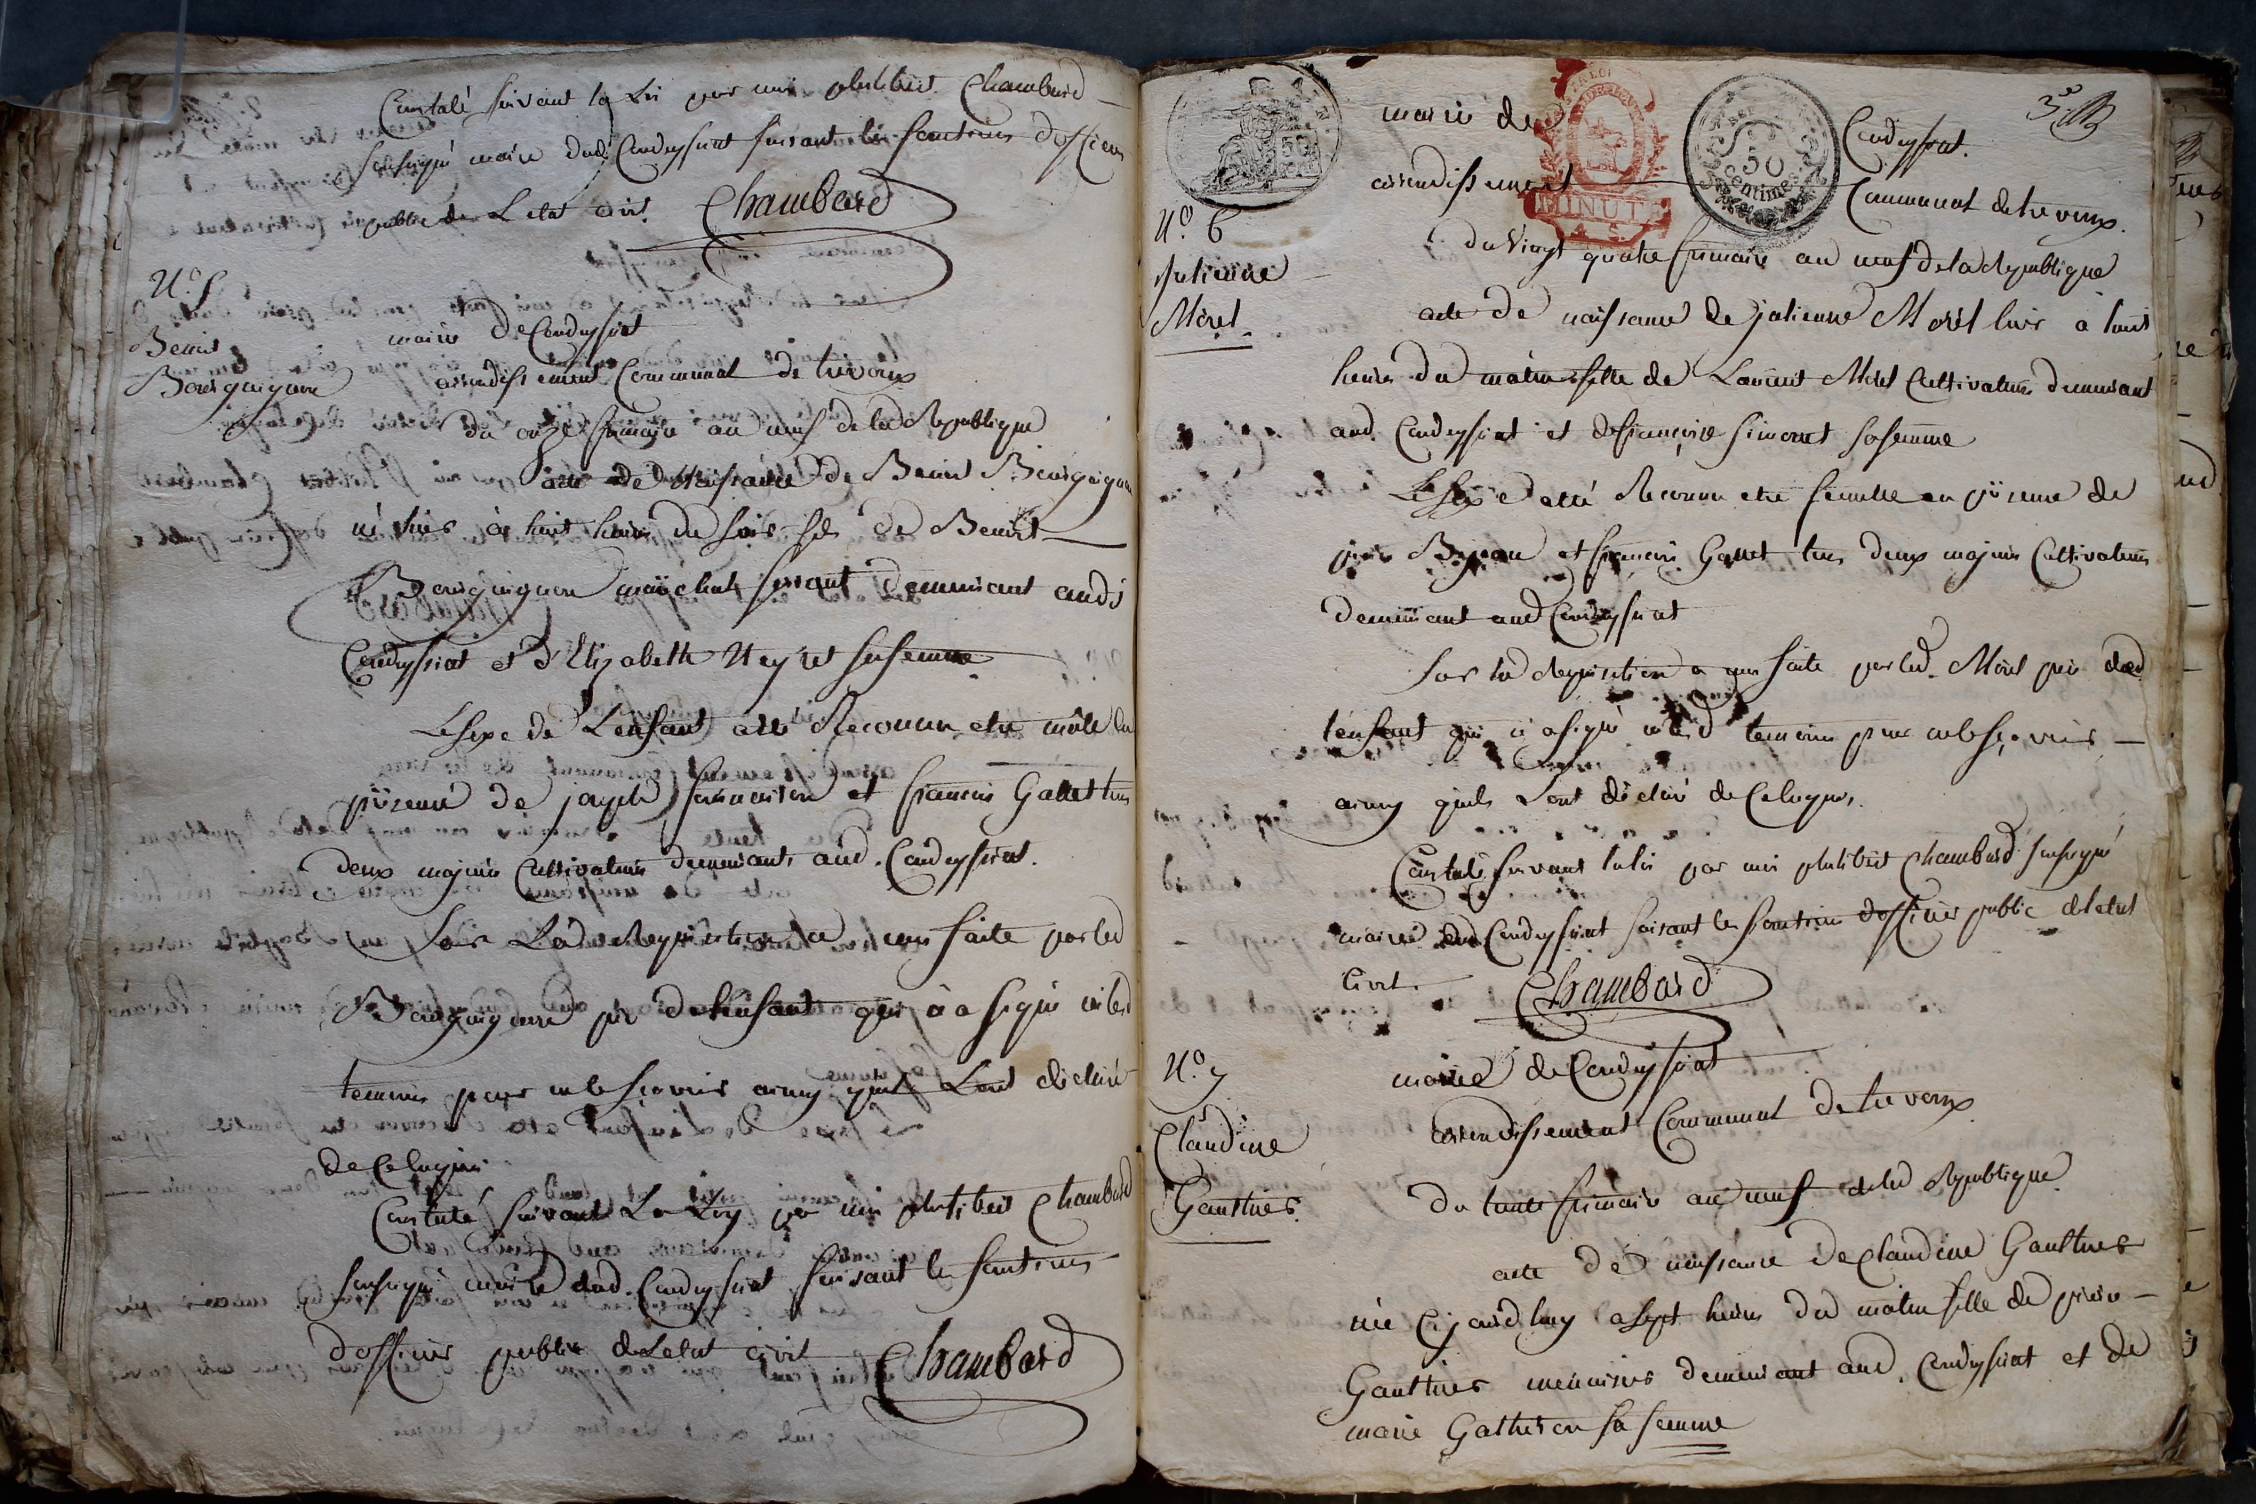 Constaté suivant la Loi par moi philibert Chambard
soussigné maire dud. Condeyssiat faisant les fonctions d'officier
public de L'etat civil. Chambard
N.º 5
Benoit
Bourguignon
mairie de Condeyssiat
arrondissement Communal de trevoux
du onze frimaire an neuf de la Republique
acte de Naissance de Benoit Bourguignon
né hier à huit heures du soir fils de Benoit
Bourguignon maréchal ferrant demeurant audi
Condeyssiat et d'Elizabeth Neyret sa femme
Le sexe de L'enfant a été Reconnu etre mâle en
présence de joseph et francois Gallet tous
deux majeurs Cultivateurs demeurants aud. Condeyssiat.
Sur La Requisition a moi faite par led
Bourguignon pere de L'enfant qui a signé et led
temoins pour ne le sçavoir ainsy qu'ils L'ont déclaré
de Ce Requis
Constaté suivant La Loy par moi philibert Chambard
soussigné maire dud. Condeyssiat faisant les fonctions
d'officier public de L'etat civil Chambard
3.e
50 centimes
MINUTE
mairie de Condeyssiat.
arrondissement Communal de trevoux.
N.º 6
Julienne
Morel.
du vingt quatre frimaire an neuf de la Republique
acte de naissance de julienne Morel hier à huit
heures du matin fille de Laurent Morel Cultivateur demeurant
aud. Condeyssiat et de françoise Simonet sa femme
Le sexe a été Reconnu etre femelle en présence de
et francois Gallet tous deux majeurs Cultivateurs
demeurant aud Condeyssiat
Sur la Requisition a moi faite par led. Morel pere dud
l'enfant qui a signé temoins pour ne le sçavoir
ainsy qu'ils L'ont déclaré de Ce Requis.
Constaté suivant la loi par moi philibert Chambard soussigné
maire dud Condeyssiat faisant les fonctions d'officier public de l'etat
Civil. Chambard
N.º 7
Claudine
Gauthier.
mairie de Condeyssiat
arrondissement Communal de trevoux
Du trente frimaire an neuf de la Republique
acte de naissance de Claudine Gauthier
née Cejourdhuy a sept heures du matin fille de pierre
Gauthier menuisier demeurant aud. Condeyssiat et de
marie sa femme